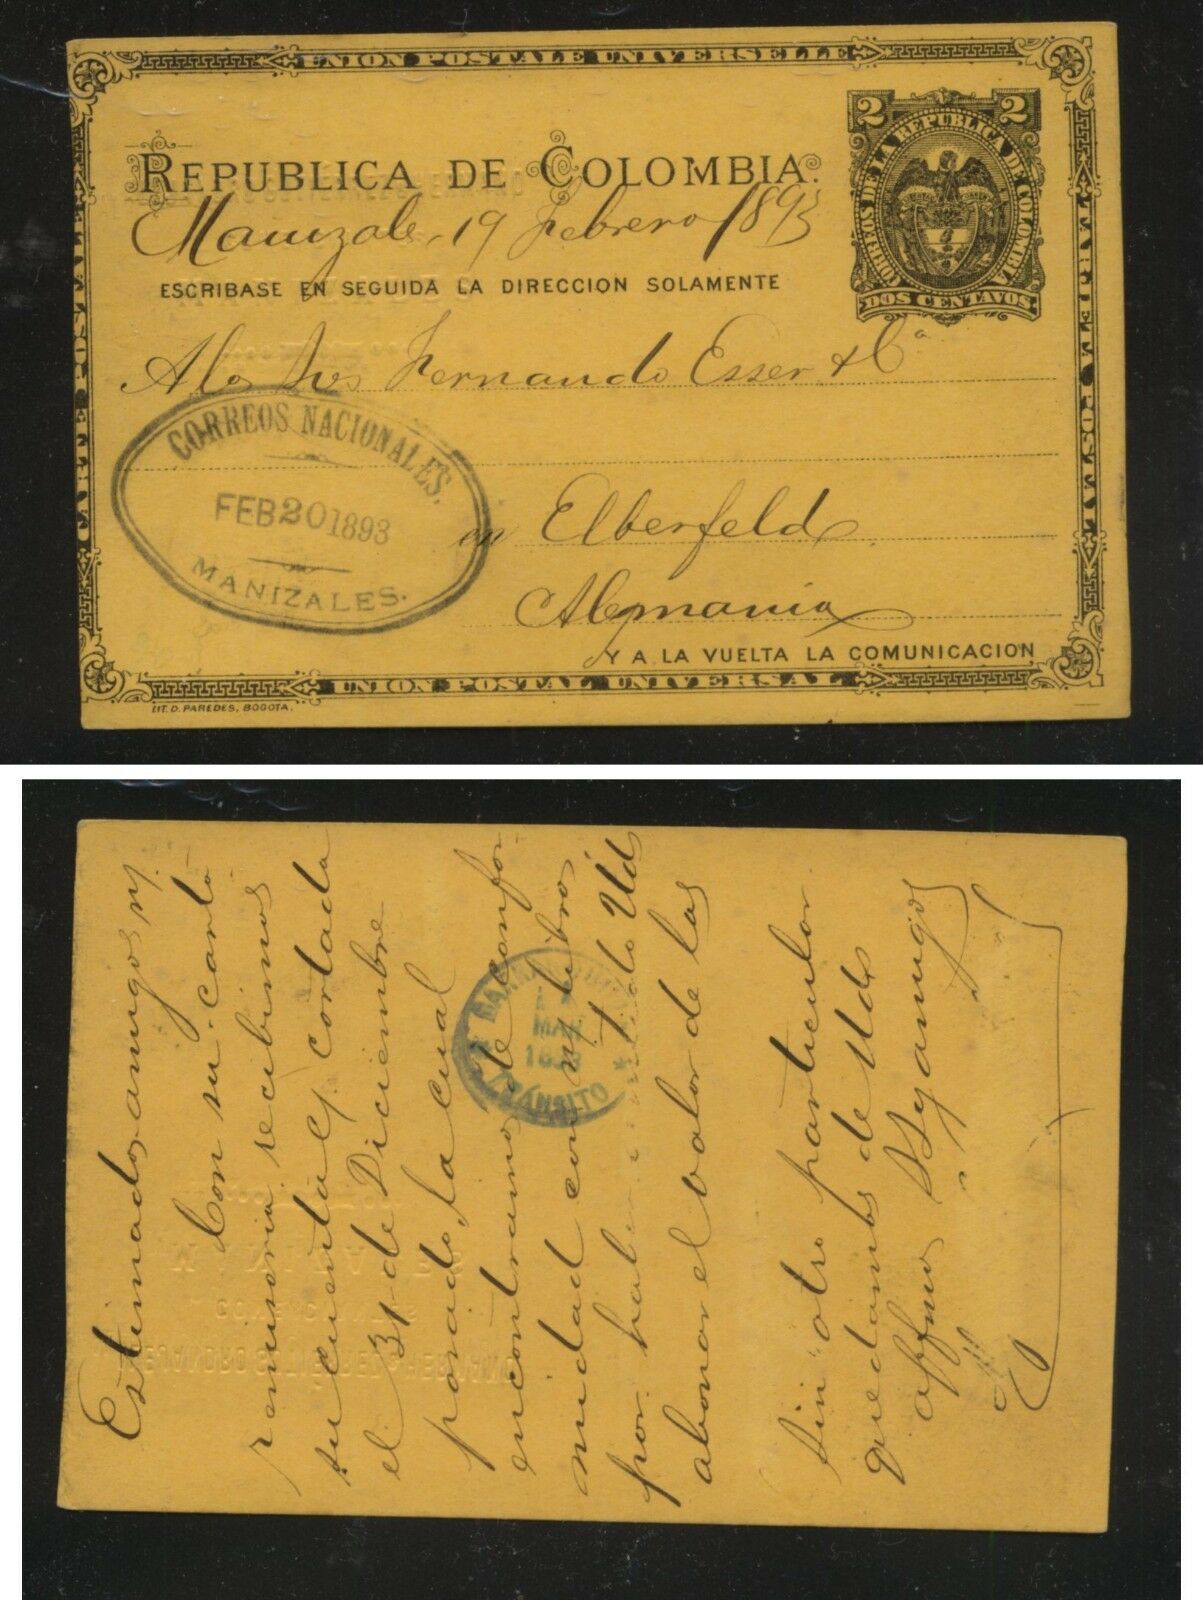 UNION POSTALE UNIVERSELLE
2 2
CORREOS DE LA REPUBLICA DE COLOMBIA
DOS CENTAVOS
REPUBLICA DE COLOMBIA.
Manizales, 19 febrero 1893
ESCRIBASE EN SEGUIDA LA DIRECCION SOLAMENTE
A los Sres Fernando Esser & Ca
CORREOS NACIONALES.
FEB 20 1893
MANIZALES.
en Elberfeld
Alemania
Y A LA VUELTA LA COMUNICACION
UNION POSTAL UNIVERSAL
LIT. D. PAREDES, BOGOTA.
Estimados amigos
Con su carta
remisoria recibimos
su cuenta cortada
el 31 de Diciembre
pasado, la cual
encontramos de confor
midad con libros
por haber Ud
abonar el valor de las
Sin otro particular
quedamos de Uds
affmos SS y amigos
BARRANQUILLA
MAR
1893
TRÁNSITO